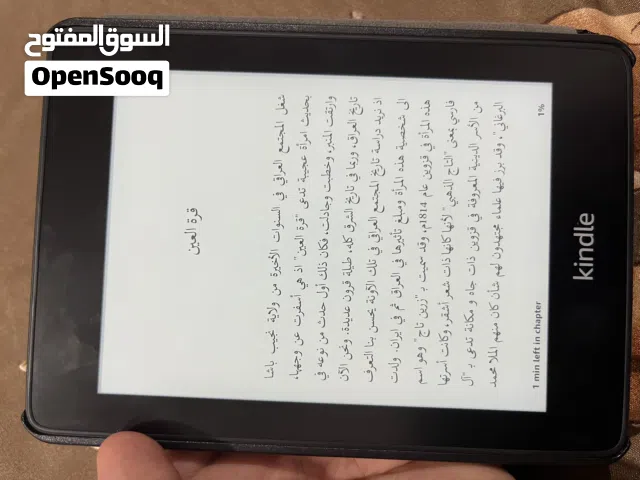 السوق المفتوح
OpenSooq
قرة العين
شغل المجتمع العراقي في السنوات الأخيرة من ولاية نجيب باشا
بحديث امرأة عجيبة تدعى "قرة العين" اذ هي أسفرت عن وجهها،
وارتقت المنبر، وخطبت وجادلت، فكان ذلك أول حدث من نوعه في
تاريخ العراق، وربما في تاريخ الشرق كله، طيلة قرون عديدة. ونحن الآن
اذ نريد دراسة تاريخ المجتمع العراقي في تلك الآونة يحسن بنا التعرف
الى شخصية هذه المرأة ومبلغ تأثيرها في العراق ثم في ايران. ولدت
هذه المرأة في قزوين عام 1814م، وقد سميت بـ "زرين تاج" وهو اسم
فارسي بمعنى "التاج الذهبي" لأنها كانها ذات شعر أشقر، وكانت أسرتها
من الأسر الدينية المعروفة في قزوين ذات جاه و مكانة تدعى بـ "آل
البرغاني"، وقد برز فيها علماء مجتهدون لهم شأن كان منهم الملا محمد
1 min left in chapter
1%
kindle